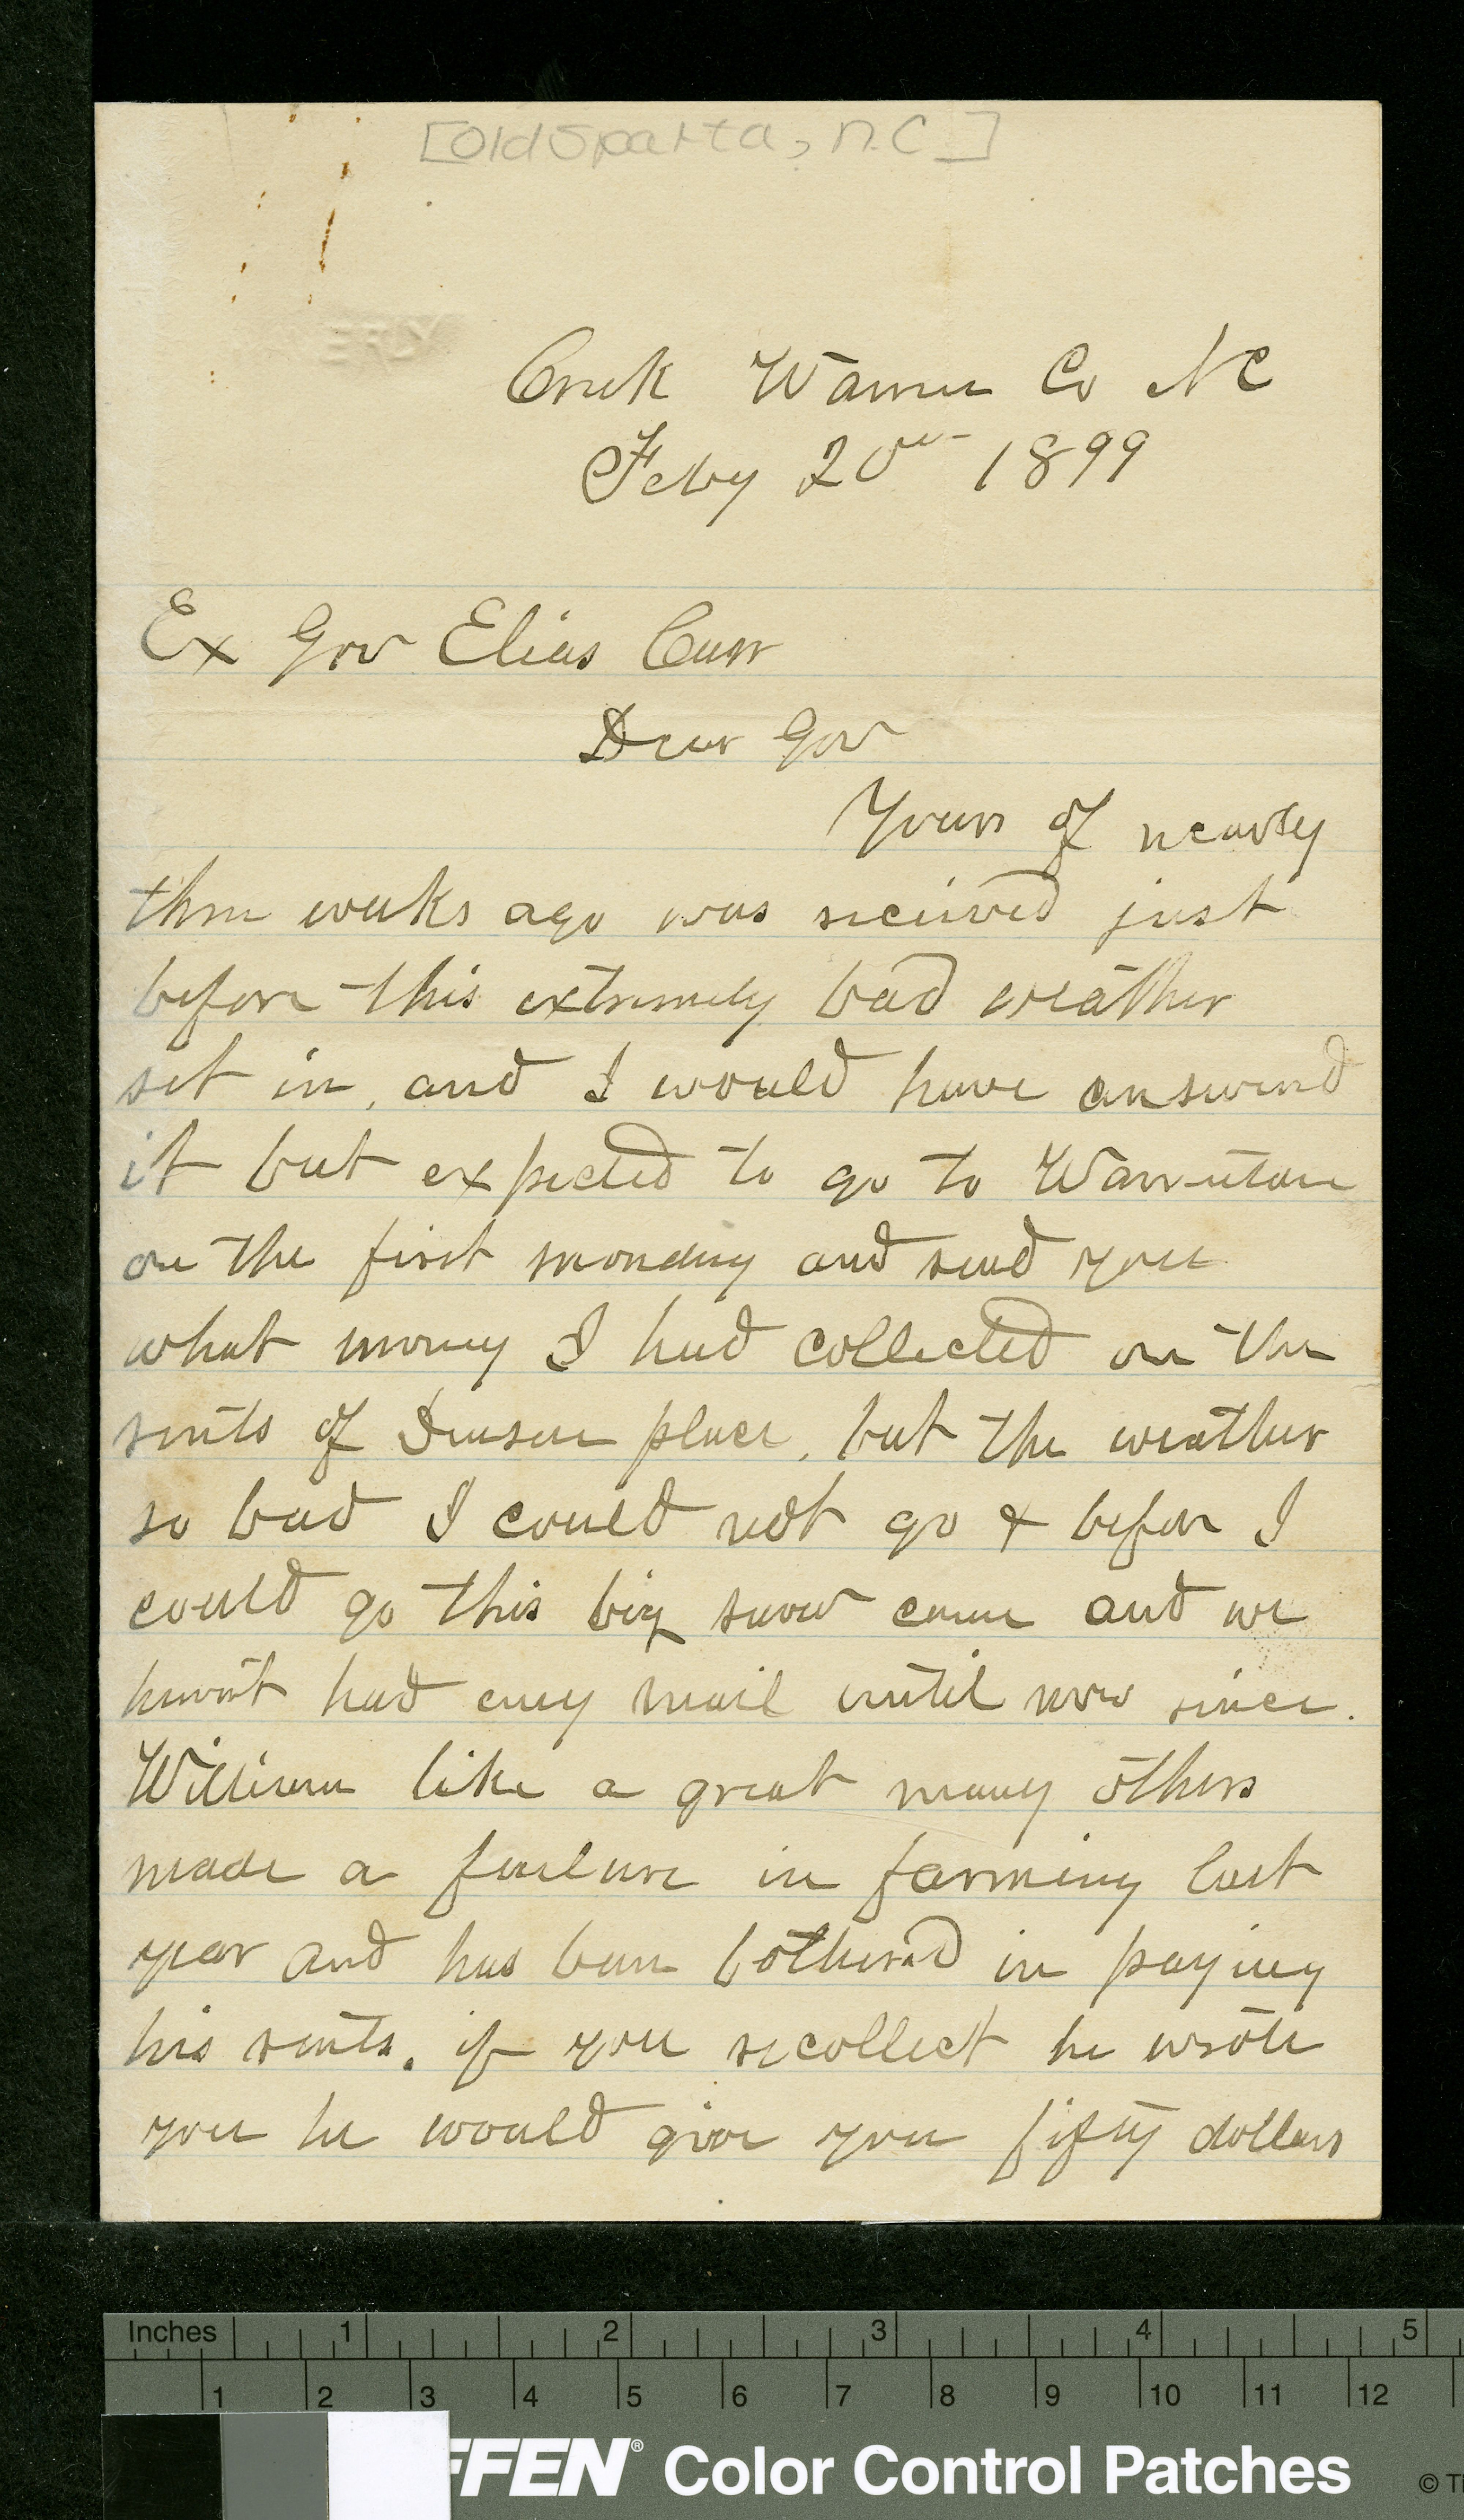 [Old Sparta, N.C]
Creek Warren Co NC
Feby 20th 1899
Ex Gov Elias Carr
Dear Gov
Yours of nearly
three weeks ago was received just
before this extremely bad weather
set in, and I would have answered
it but expected to go to Warrenton
on the first monday and send you
what money I had collected on the
rents of place, but the weather
so bad I could not go & before I
could go this big snow came and we
havent had any mail until now since.
William like a great many others
made a failure in farming last
year and has been bothered in paying
his rents. if you recollect he wrote
you he would give you fifty dollars
Inches 1 2 3 4 5
1 2 3 4 5 6 7 8 9 10 11 12
FFEN® Color Control Patches